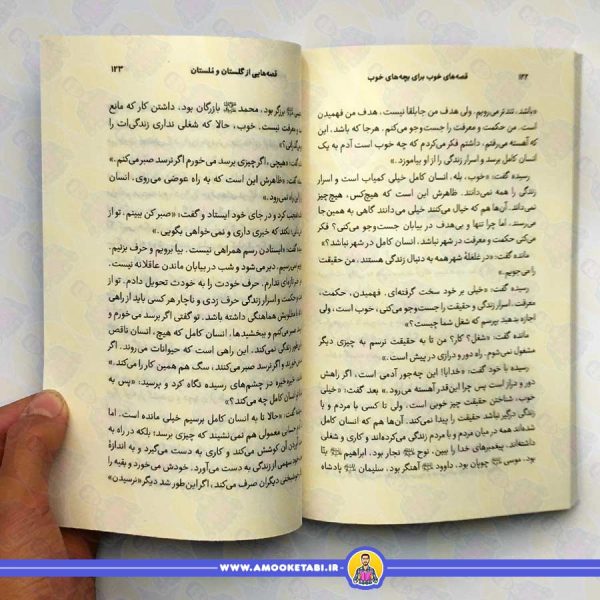 ۱۲۲
قصه‌های خوب برای بچه‌های خوب
«باشد، تندتر می‌رویم. ولی هدف من جابلقا نیست، هدف من فهمیدن
است. من حکمت و معرفت را جست‌وجو می‌کنم. هرجا که باشد. این
که آهسته می‌رفتم، داشتم فکر می‌کردم که چه خوب است آدم به یک
انسان کامل برسد و اسرار زندگی را از او بیاموزد.»
رسیده گفت: «خوب، بله، انسان کامل خیلی کمیاب است و اسرار
زندگی را همه نمی‌دانند. ظاهرش این است که هیچ‌کس، هیچ‌چیز
نمی‌داند. آن‌ها هم که خیال می‌کنند خیلی می‌دانند گاهی به همین‌جا
می‌رسند. اما چرا تنها و بی‌هدف در بیابان جست‌وجو می‌کنی؟ فکر
می‌کنی حکمت و معرفت در شهر نباشد، انسان کامل در شهر نباشد؟»
مانده گفت: «در غلغلهٔ شهر همه به دنبال زندگی هستند، من حقیقت
را می‌جویم.»
رسیده گفت: «خیلی بر خود سخت گرفته‌ای. فهمیدن، حکمت،
معرفت، اسرار زندگی و حقیقت را جست‌وجو می‌کنی، خوب است. ولی
اجازه بدهید بپرسم که شغل شما چیست؟»
مانده گفت: «شغل؟ کار؟ من تا به حقیقت نرسم به چیزی دیگر
مشغول نمی‌شوم. راه دور و درازی در پیش است.»
رسیده با خود گفت: «خدایا! این چه‌جور آدمی است. اگر راهش
دور و دراز است پس چرا این‌قدر آهسته می‌رود.» بعد گفت: «خیلی
خوب، شناختن حقیقت چیز خوبی است، ولی تا کسی با مردم و با
زندگی درگیر نباشد حقیقت را پیدا نمی‌کند. آن‌ها هم که انسان کامل
شده‌اند همه در میان مردم و با مردم زندگی می‌کرده‌اند و کاری و شغلی
داشته‌اند. پیغمبرهای خدا را ببین، نوح نجار بود، ابراهیم بنّا
بود، موسی چوپان بود، داوود آهنگر بود، سلیمان پادشاه
قصه‌هایی از گلستان و ملستان
۱۲۳
برزگر بود، محمد بازرگان بود، داشتن کار که مانع
معرفت نیست. خوب، حالا که شغلی نداری زندگی‌ات را
می‌گذرانی؟»
گفت: «هیچی، اگر چیزی برسد می خورم اگر نرسد صبر می‌کنم.»
گفت: «ظاهرش این است که به راه عوضی می‌روی. انسان
این راه نمی‌رود.»
تعجب کرد و در جای خود ایستاد و گفت: «صبر کن ببینم. تو از
نکند که خبری داری و نمی‌خواهی بگویی.»
گفت: «ایستادن رسم همراهی نیست. بیا برویم و حرف بزنیم.
می‌رسیم. دیر می‌شود و شب در بیابان ماندن عاقلانه نیست.
تازه‌ای ندارم. حرف خودت را به خودت تحویل دادم. تو از
حکمت و اسرار زندگی حرف زدی و ناچار هر کسی باید از راهی
مطلوبش هماهنگی داشته باشد. تو گفتی اگر برسد می خورم و
صبر می‌کنم و ببخشیدها، انسان کامل که هیچ، انسان ناقص
این‌طور زندگی نمی‌کند. این راهی است که حیوانات می‌روند.
خورند و اگر نرسد صبر می‌کنند، سگ هم همین کار را می‌کند.»
خیره خیره در چشم‌های رسیده نگاه کرد و پرسید: «پس به
انسان کامل چه می‌کند؟»
گفت: «حالا تا به انسان کامل برسیم خیلی مانده است. اما
حسابی معمولی هم نمی‌نشیند که چیزی برسد؛ بلکه در راه به
آن کوشش می‌کند و کاری به دست می‌گیرد و به اندازهٔ
سهمی از زندگی به دست می‌آورد. خودش می‌خورد و بقیه را
خوشبختی دیگران صرف می‌کند، اگر این‌طور شد دیگر «نرسیدن»
WWW.AMOOKETABI.IR